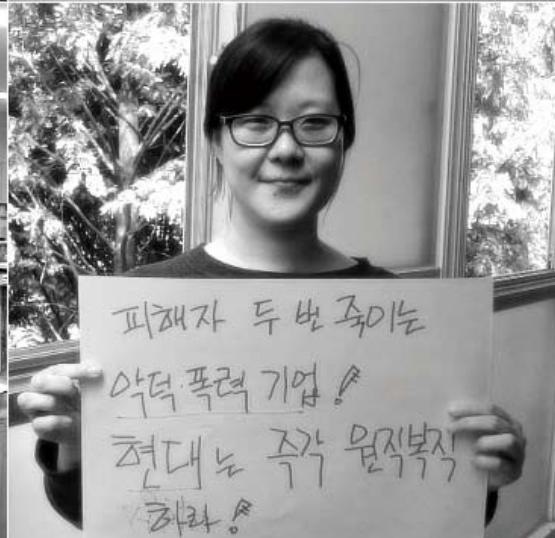 피해자 두 번 죽이는
악덕·폭력 기업!
현대는 즉각 원직복직
하라!